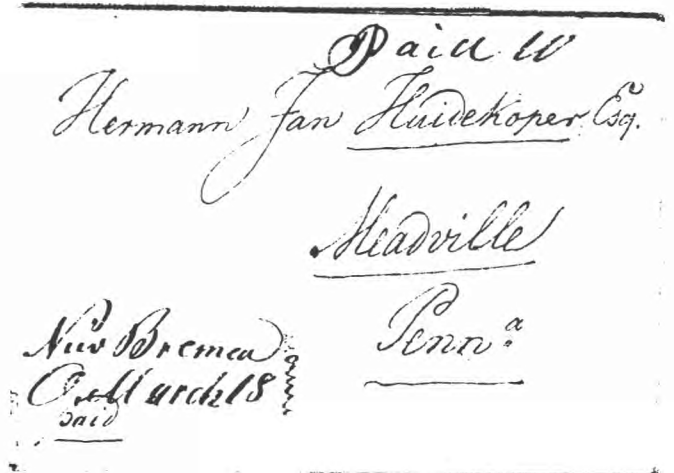 Paid 10
Hermann Jan Huidekoper Esq.
Meadville
Penn.ª
New Bremen
O. March 18
paid